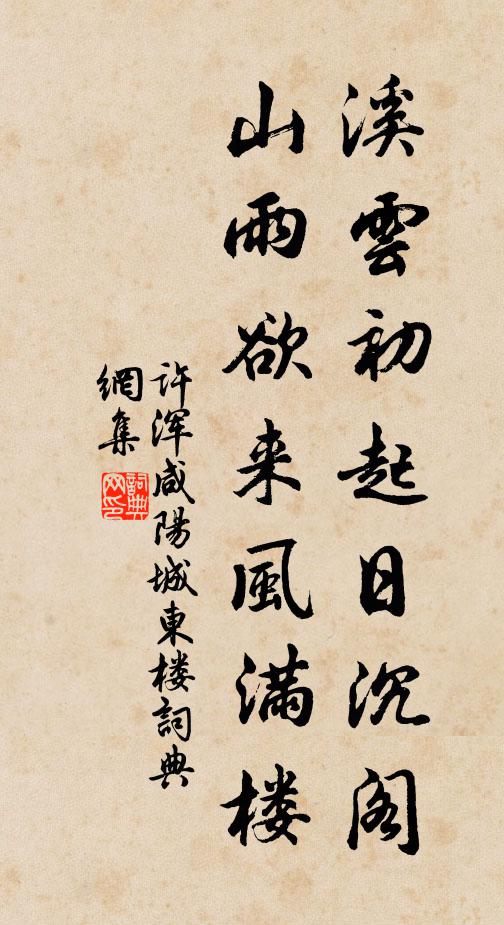 溪雲初起日沉阁
山雨欲来風满楼
許渾咸陽城東楼詞典
網集
詞典
网印